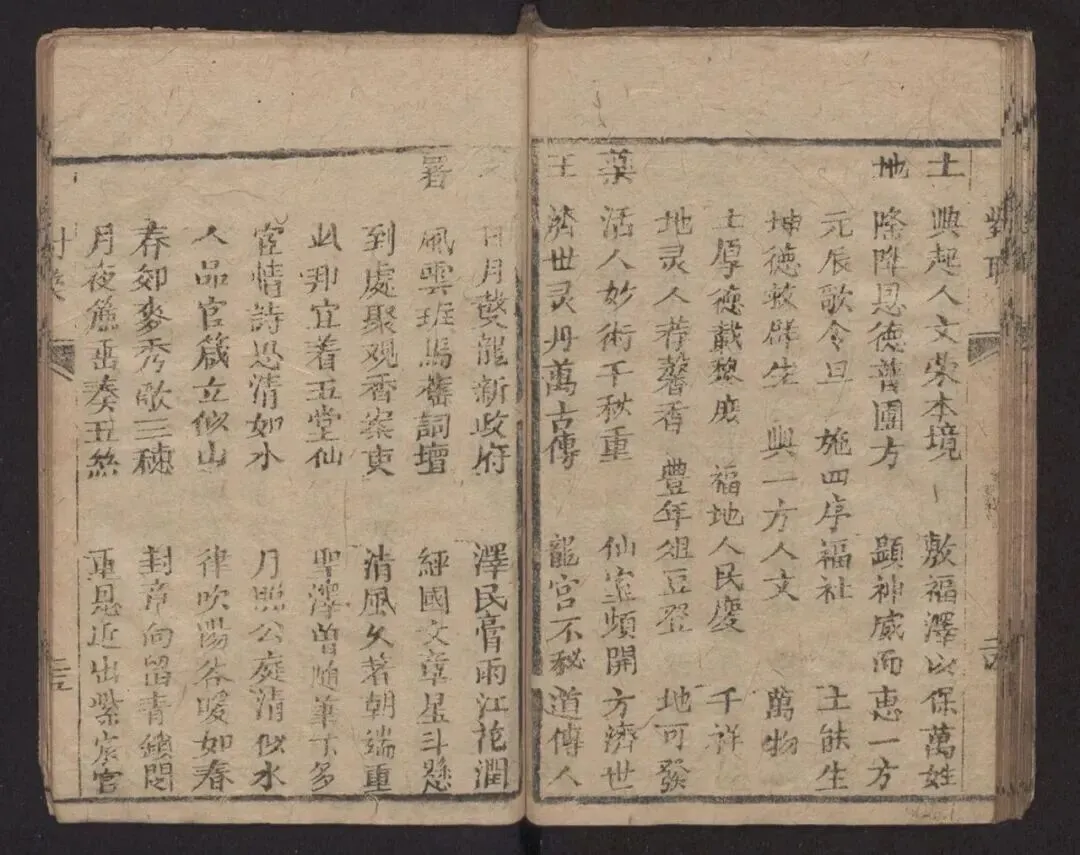 對聯
土 興起人文榮本境 敷福澤以保萬姓
地 隆降恩德普團方 顕神威而恵一方
元辰歌令旦 施四序福社 土能生
坤德敉群生 興一方人文 萬物
土厚徳載黎庶 福地人民慶 千祥
地灵人荐馨香 豊年俎豆登 地可發
藥 活人妙術千秋重 仙室頻開方濟世
王 濟世灵丹萬古傳 龍宮不秘道傳人
日月夔龍新政府 澤民膏雨江花潤
署 風雲班馬舊詞壇 經國文章星斗懸
到處聚观香案吏 清風久著朝端重
此邦宜着玉堂仙 聖澤曽随筆下多
宦情詩思清如水 月照公庭清似水
人品官箴立似山 律吹陽谷暖如春
春郊麥秀歌三穗 封章向留青鎖闥
月夜簾垂奏五絲 重恩近出紫宸宮
對聯